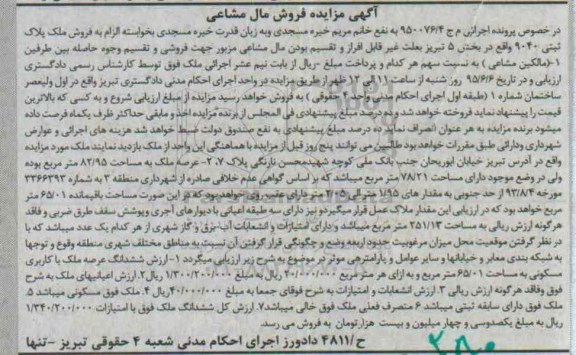 آگهی مزایده فروش مال مشاعی
در خصوص پرونده اجرائی م ج ۹۵۰۰۷۶/۴ به نفع خانم مریم خیره مسجدی وبه زیان قدرت خیره مسجدی بخواسته الزام به فروش ملک پلاک
ثبتی ۹۰۴۰ واقع در بخش ۵ تبریز بعلت غیر قابل افراز و تقسیم بودن مال مشاعی مزبور جهت فروشی و تقسیم وجوه حاصله بین طرفین
۱-(مالکین مشاعی ) به نسبت سهم هر کدام و پرداخت مبلغ -ریال از بابت نیم عشر اجرائی ملک فوق توسط کارشناس رسمی دادگستری
ارزیابی و در تاریخ ۹۵/۶/۶ روز شنبه از ساعت ۱۱ الی ۱۲ ظهر از طریق مزایده در واحد اجرای احکام مدنی دادگستری تبریز واقع در اول ولیعصر
ساختمان شماره ۱ (طبقه اول اجرای احکام مدنی شعبه ۴ حقوقی ) به فروش خواهد رسید مزایده از مبلغ ارزیابی شروع و به کسی که بالاترین
قیمت را پیشنهاد نماید فروخته خواهد شد و ده درصد مبلغ پیشنهادی فی المجلس از برنده مزایده اخذ و مابقی حداکثر ظرف یکماه فرصت داده
میشود برنده مزایده به هر عنوان انصراف نماید ده درصد مبلغ پیشنهادی به نفع صندوق دولت ضبط خواهد شد هزینه های اجرائی و عوارض
شهرداری ودارائی طبق مقررات خواهد بود طالبین می توانند پنج روز قبل از مزایده با هماهنگی این واحد از ملک بازدید نمایند ملک مورد مزایده
واقع در آدرس تبریز خیابان ابوریحان جنب بانک ملی کوچه شهیدمحسن نارنگی پلاک ۲،۷- عرصه ملک به مساحت ۸۲/۹۵ متر مربع بوده
ولی در وضع موجود دارای مساحت ۷۸/۲۱ متر مربع میباشد که بر اساس گواهی عدم خلافی صادره از شهرداری منطقه ۳ به شماره ۳۳۶۶۳۹۳
مورخه ۹۳/۸/۴ از حد جنوبی به مقدار های ۱/۹۵ متر الی ۲/۰۵ متر دارای عقب روی خواهد بود که در این صورت مساحت باقیمانده ۶۵/۰۱ متر
مربع خواهد بود که در ارزیابی این مقدار ملاک عمل قرار میگیرد و نیز دارای سه طبقه اعیانی با دیوارهای آجری وپوشش سقف طرق ضربی و فاقد
هر گونه ارزش ریالی به مساحت ۲۵۱/۱۳ متر مربع میباشد و دارای امتیازات و انشعابات آب برق و گاز شهری از هر کدام یک عدد میباشد که با
در نظر گرفتن موقعیت محل میزان مرغوبیت حدود اربعه وضع و چگونگی قرار گرفتن آن نسبت به مناطق مختلف شهری منطقه وقوع و توجها
به شبکه بندی معابر و خیابانها و سایر عوامل و پارامترهای موثر در موضوع به شرح زیر ارزیابی میگردد ۱- ارزش ششدانگ عرصه ملک با کاربری
مسکونی به مساحت ۶۵/۰۱ متر مربع و به ازای هر متر مربع ۲۰/۰۰۰/۰۰۰ ریال به مبلغ ۱/۳۰۰/۲۰۰/۰۰۰ ریال ۲. ارزش اعیانیهای ملک به شرح
فوق وفاقد هرگونه ارزش ریالی ۳. ارزش انشعابات و امتیازات به شرح فوقای جمعا به مبلغ ۴۰/۰۰۰/۰۰۰ ریال ۴. ملک فوق مسکونی میباشد ۵.
ملک فوق دارای سابقه ثبتی میباشد ۶ متصرف فعلی ملک فوق خالی میباشد ۷. ارزش کل ششدانگ ملک فوق با امتیازات ۱/۳۴۰/۲۰۰/۰۰۰
ریال به مبلغ یکصدوسی و چهار میلیون و بیست هزارتومان به فروش می رسد.
ح/۴۸۱۱ دادورز اجرای احکام مدنی شعبه ۴ حقوقی تبریز -تنها